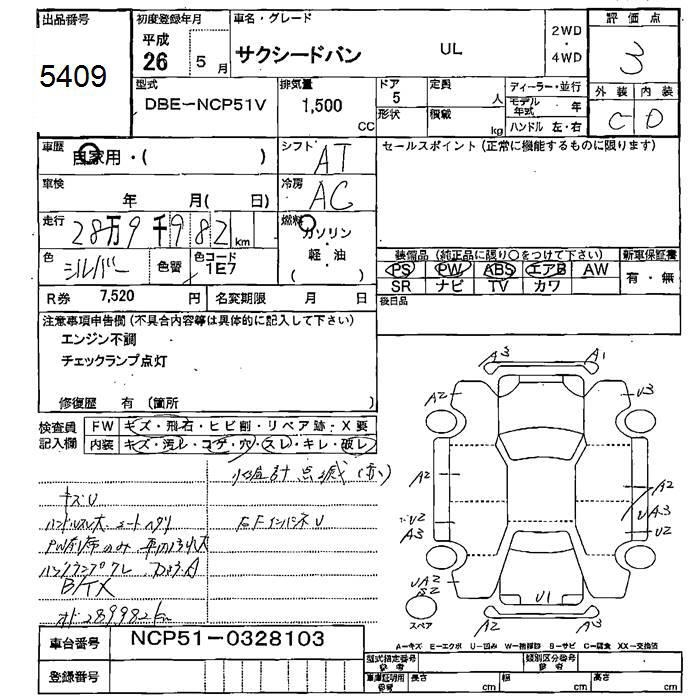 出品番号
5409
初度登録年月
平成
26 5月
車名・グレード
サクシードバン UL
2WD
・
4WD
評価点
3
外装 内装
C D
型式
DBE-NCP51V
排気量
1,500
CC
ドア
5
形状
定員
人
積載
kg
ディーラー・並行
モデル年式 年
ハンドル 左・右
車歴
自家用・( )
シフト
AT
セールスポイント(正常に機能するものに限ります)
車検
年 月( 日)
冷房
AC
走行
28万9千982km
燃料
ガソリン
・
軽油
( )
色
シルバー
色替
色コード
1E7
装備品(純正品に限り○をつけて下さい)
新車保証書
PS PW ABS エアB AW
SR ナビ TV カワ
有・無
R券 7,520
名変期限 月 日
後日品
注意事項申告欄(不具合内容等は具体的に記入して下さい)
エンジン不調
チェックランプ点灯
修復歴 有(箇所 )
検査員
記入欄
FW キズ・飛石・ヒビ割・リペア跡・X要
内装 キズ・汚レ・コゲ・穴・スレ・キレ・破レ
キズU
B/TX
A3 A1
A2 U3
A2 A2
U2
A3 U2
UA2
U1
スペア
A2 A3
A-キズ E-エクボ U-凹み W-補修跡 S-サビ C-腐食 XX-交換済
車台番号
NCP51-0328103
登録番号
型式指定番号
類別区分番号
長さ cm 幅 cm 高さ cm